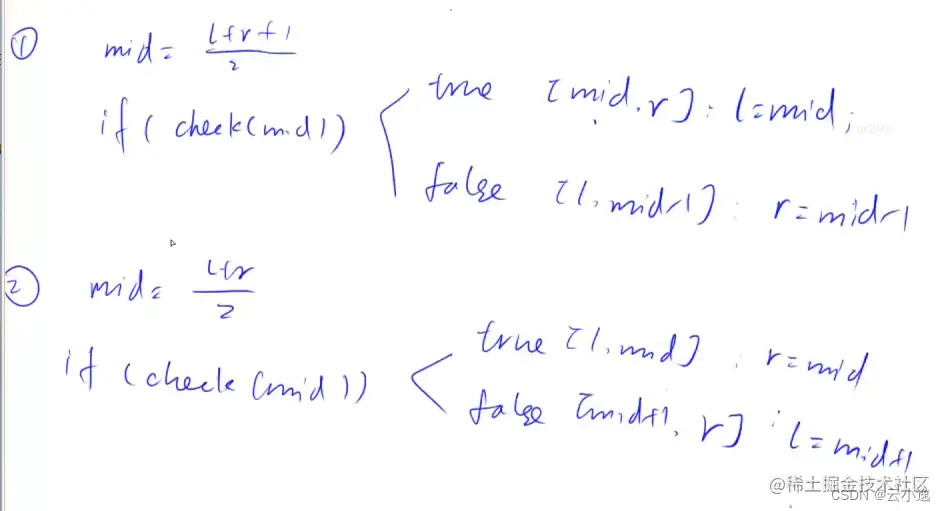 ① mid = (l+r+1)/2
if (check(mid)) true [mid, r] : l=mid;
false [l, mid-1] : r=mid-1
② mid = (l+r)/2
if (check(mid)) true [l, mid] : r=mid
false [mid+1, r] : l=mid+1
@稀土掘金技术社区
CSDN @云小逸